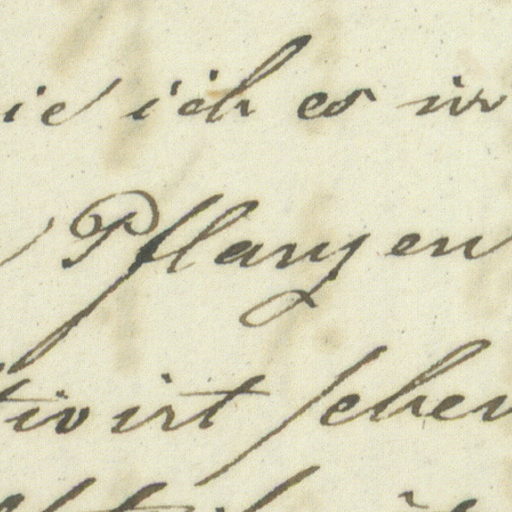 ie ich es in
Pflanzen
tivirt sehen